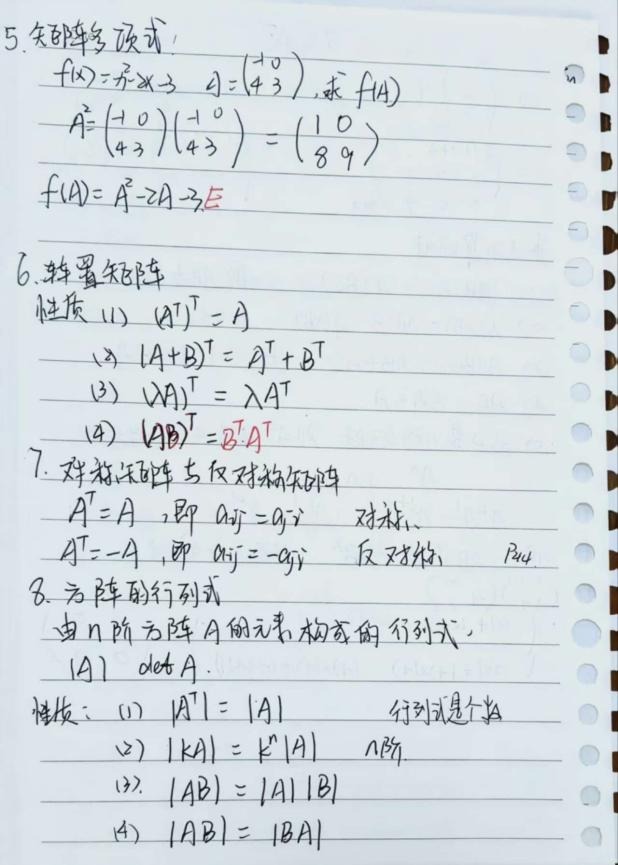 5. 矩阵多项式:
f(x)=x²-2x-3 A=(-1 0; 4 3), 求 f(A)
A²=(-1 0; 4 3)(-1 0; 4 3) = (1 0; 8 9)
f(A)=A²-2A-3E
6. 转置矩阵
性质 (1) (Aᵀ)ᵀ = A
(2) (A+B)ᵀ = Aᵀ+Bᵀ
(3) (λA)ᵀ = λAᵀ
(4) (AB)ᵀ = BᵀAᵀ
7. 对称矩阵与反对称矩阵
Aᵀ=A, 即 aij=aji 对称
Aᵀ=-A, 即 aij=-aji 反对称 P44
8. 方阵的行列式
由n阶方阵A的元素构成的行列式,
|A| det A.
性质: (1) |Aᵀ| = |A| 行列式是个数
(2) |kA| = kⁿ|A| n阶
(3). |AB| = |A||B|
(4) |AB| = |BA|